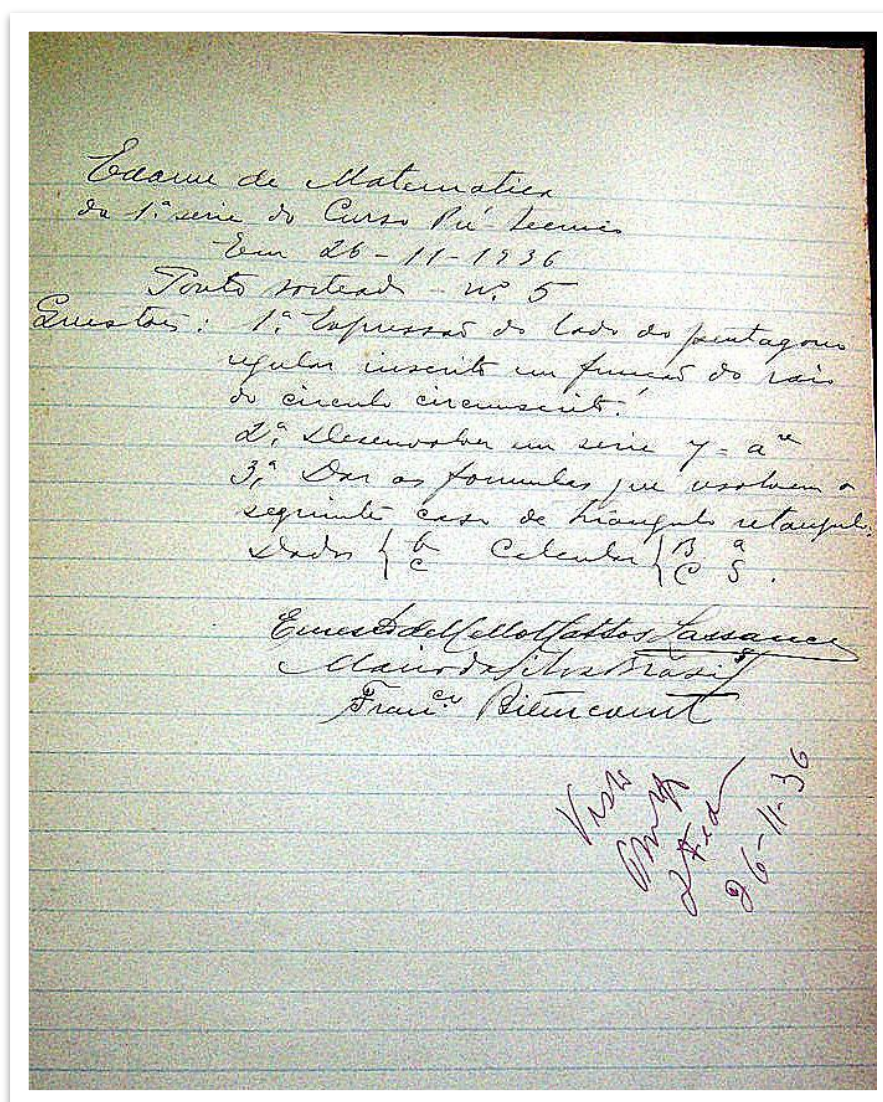 Exame de Matematica
da 1ª serie do Curso Pré-Tecnico
Em 26-11-1936
Ponto sorteado - nº 5
Questões: 1ª Expressão do lado do pentagono
regular inscrito em função do raio
do circulo circunscrito.
2ª Desenvolver em serie y = aˣ
3ª Dar as formulas que resolvem o
seguinte caso de triangulo retangulo:
Dados { b c Calcular { B a C S.
Ernesto de Mello Mattos Lassance
Mario da Silva Brasil
Franc.co Bitencourt
Visto
26-11-36